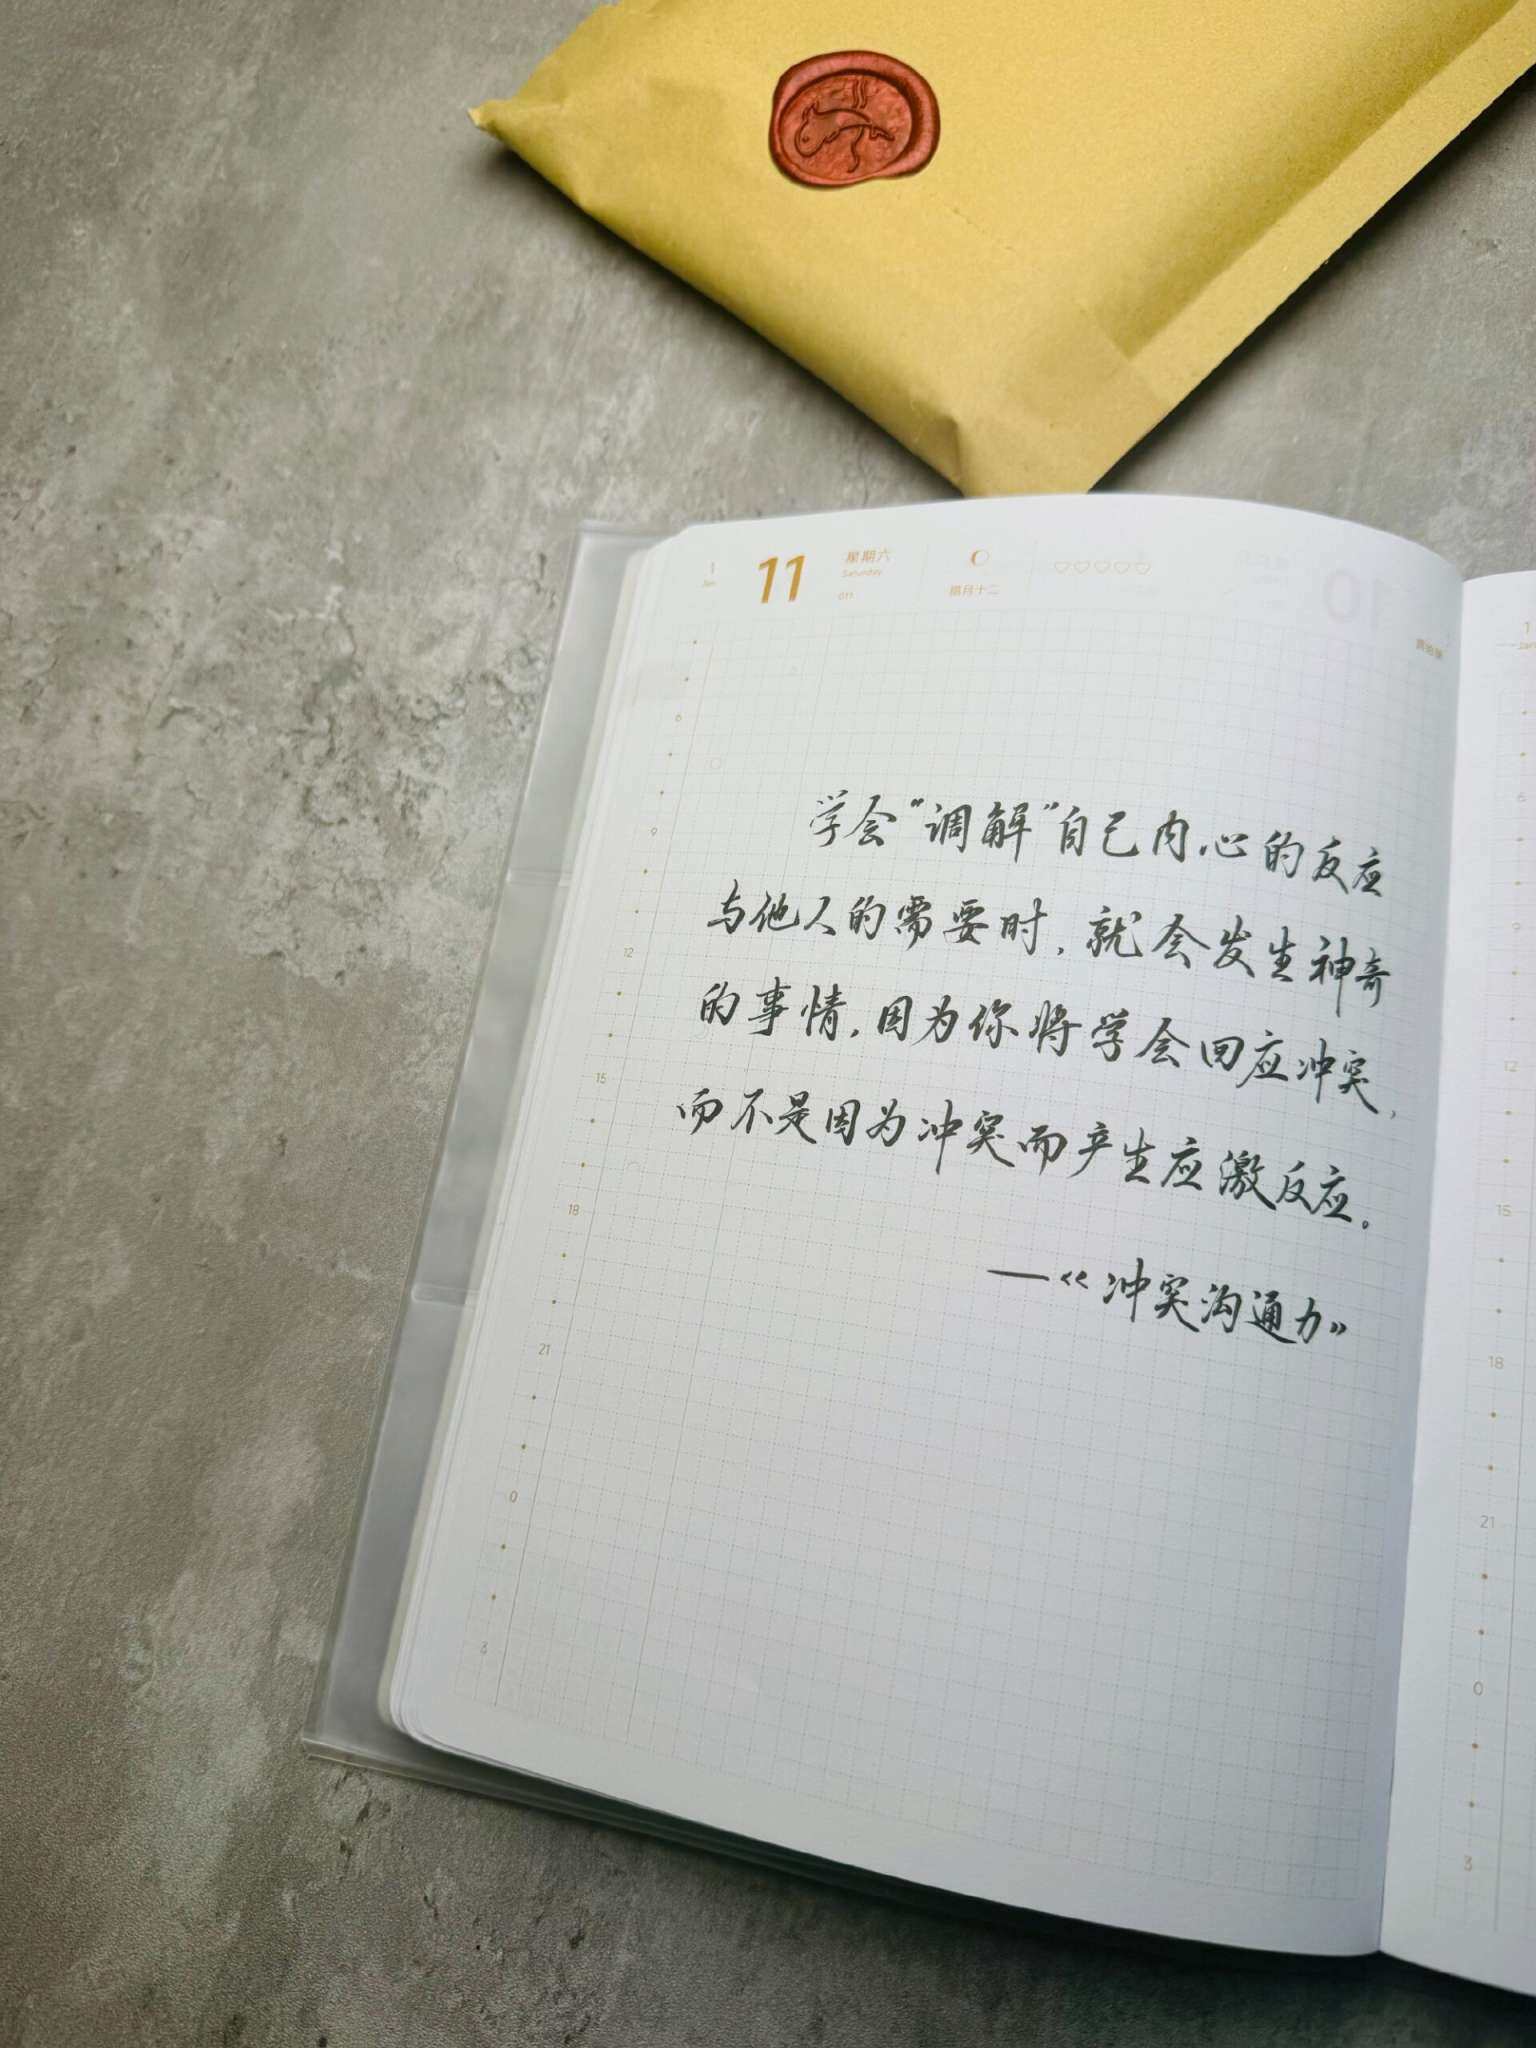 1
Jan
11
星期六
Saturday
011
腊月十二
10
学会“调解”自己内心的反应
与他人的需要时，就会发生神奇
的事情，因为你将学会回应冲突，
而不是因为冲突而产生应激反应。
—《冲突沟通力》
6
9
12
15
18
21
0
3
1
6
9
12
15
18
21
0
3